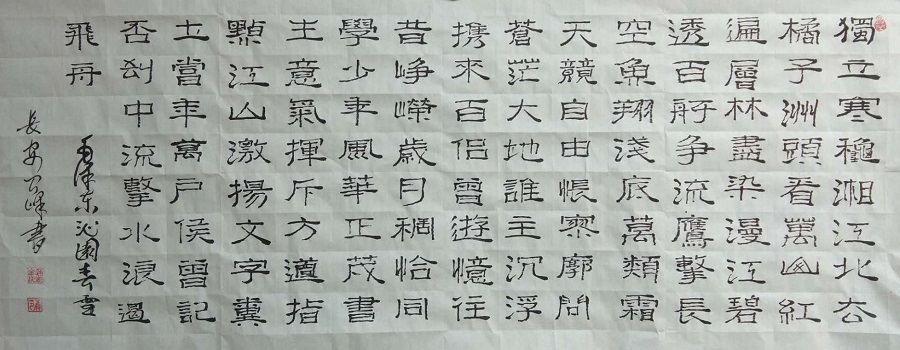 獨立寒穐湘江北去
橘子洲頭看萬山紅
遍層林盡染漫江碧
透百舸争流鷹擊長
空魚翔淺底萬類霜
天競自由悵寥廓問
蒼茫大地誰主沉浮
携來百侣曾遊憶往
昔崢嶸歲月稠恰同
學少年風華正茂書
生意氣揮斥方遒指
點江山激揚文字糞
土當年萬戶侯曾記
否到中流擊水浪遏
飛舟
毛澤東沁園春雪
長安 峰書